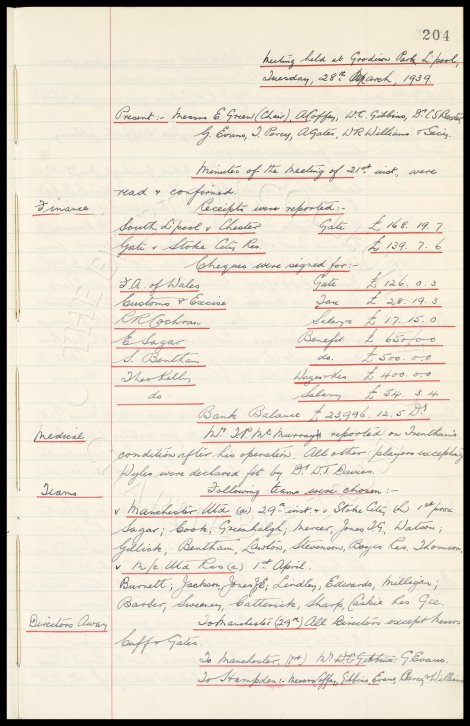 204
Meeting held at Goodison Park, L'pool,
Tuesday, 28th March, 1939.
Present:- Messrs E. Green (Chair), A. Coffey, W.C. Gibbins, Dr C.S. Baxter
G. Evans, T. Percy, A. Gates, W.R. Williams & Secy.
Minutes of the Meeting of 21st inst., were
read & confirmed.
Finance Receipts were reported:-
South L'pool v Chester Gate £ 168. 19. 7
Gate v Stoke City Res. £ 139. 7. 6
Cheques were signed for:-
F.A. of Wales Gate £ 126. 0. 3
Customs & Excise Tax £ 28. 19. 3
R.R. Cochran Salary £ 17. 15. 0
E Sagar Benefit £ 650. 0. 0
S. Bentham do. £ 500. 0. 0
Theo Kelly Wages &c £ 400. 0. 0
do Salary £ 54. 3. 4
Bank Balance £ 23996. 12. 5 Dr.
Medical Mr. McMurray reported on Trentham's
condition after his operation. All other players excepting
Wyles were declared fit by Dr. D.T. Davies.
Teams Following teams were chosen:-
v Manchester Utd (a) 29th inst. & v Stoke City (h) 1st prox.
Sagar; Cook, Greenhalgh; Mercer, Jones T.G. Watson;
Gillick, Bentham, Lawton, Stevenson, Boyes Res. Thomson
v M/c Utd Res (a) 1st April.
Burnett; Jackson, Jones J.E; Lindley, Edwards, Milligan;
Barber, Sweeney, Catterick, Sharp, Caskie Res Gee.
Directors Away To Manchester (29th) All Directors except Messrs
Cuff & Gates.
To Manchester, (1st) Mr. W.C. Gibbins. G. Evans.
To Hampden:- Messrs Coffey, Gibbins, Evans, Percy & Williams